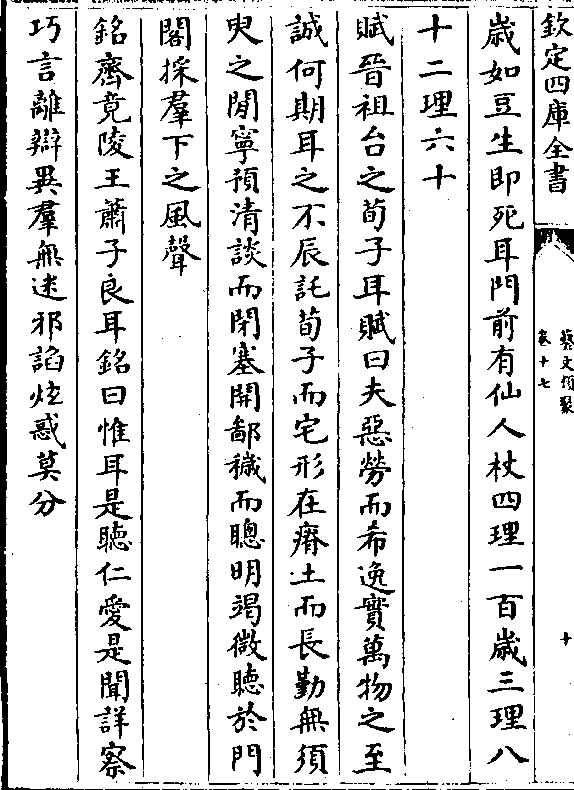 欽定四庫全書
藝文類聚
卷十七
十
歲如豆生即死耳門前有仙人杖四理一百歲三理八
十二理六十
賦晉祖台之荀子耳賦曰夫惡勞而希逸實萬物之至
誠何期耳之不辰託荀子而宅形在瘠土而長勤無須
臾之閒寧預清談而閉塞開鄙穢而聰明竭微聽於門
閣採羣下之風聲
銘齊竟陵王蕭子良耳銘曰惟耳是聴仁愛是聞詳察
巧言離辯異羣無迷邪諂炫惑莫分